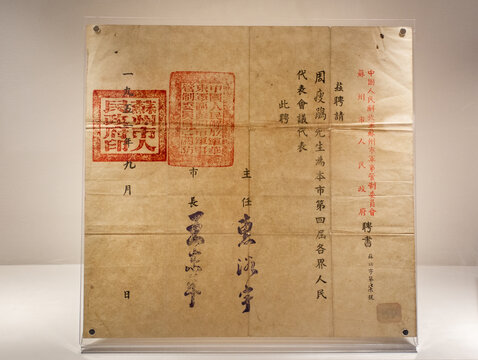 中國人民解放軍蘇州市軍事管制委員會
蘇州市人民政府
聘書
茲聘請
周瘦鵑先生為本市第四屆各界人民
代表會議代表
此聘
主任 惠浴宇
市長 王東年
一九五 年九月 日
蘇州市人民政府印